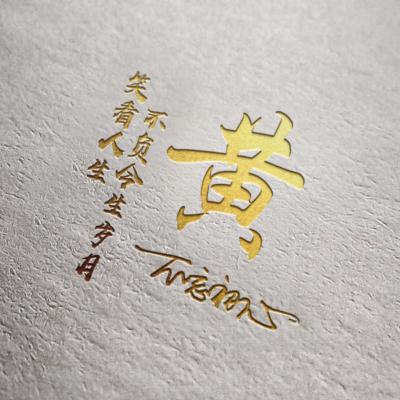 黄
不负今生岁月
笑看人生
不忘初心